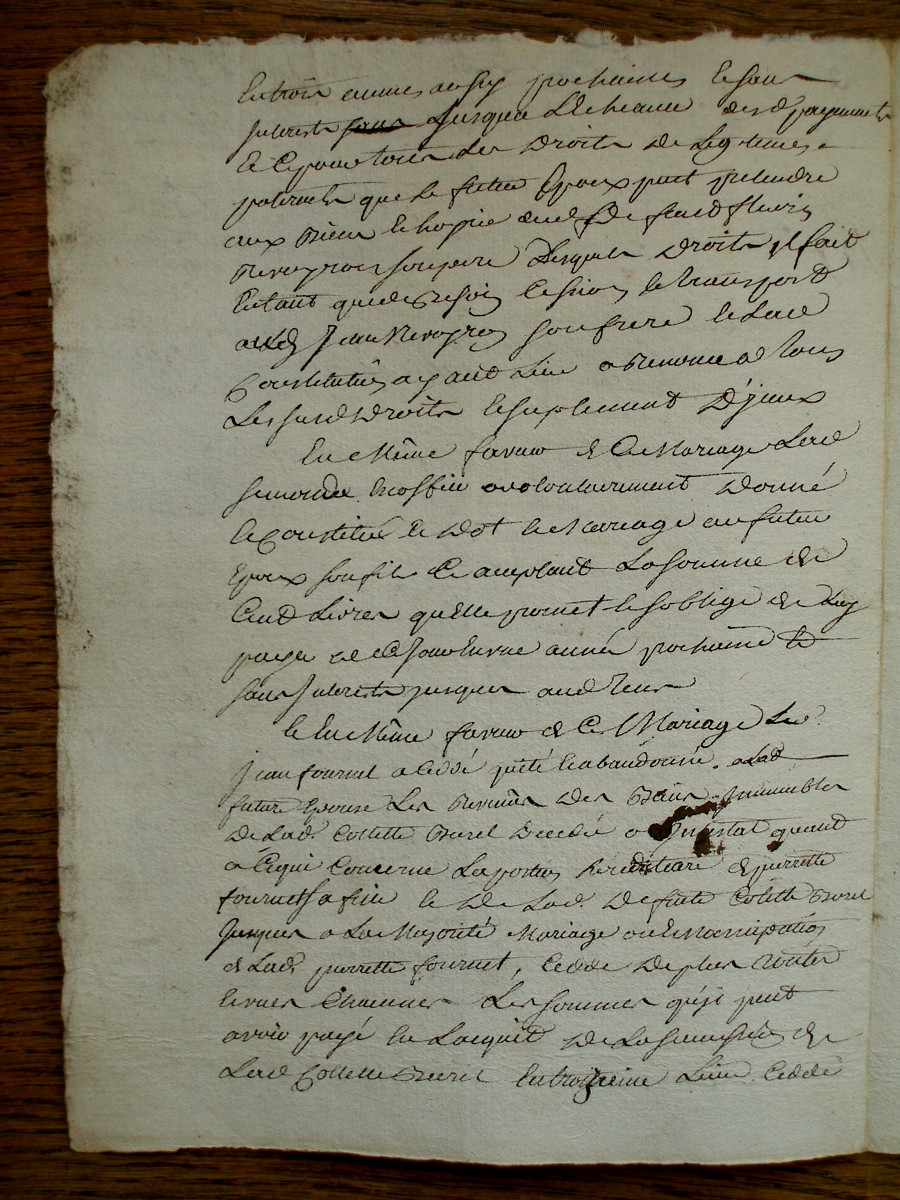 trois années aussy prochaines et sans
interets jusqua Lecheance desd payements
et ce pour tous Les Droits de Legitimes
paternels que le futur Epoux peut pretendre
aux Biens et hoirie dud feu fleury
Neyron son pere Lesquels Droits Il fait
Entant que de Besoin Cession et transport
aud Jean Neyron son frere et Lad
Constitution ayant Lieu a Renoncé a tous
Les susd Droits et suplement D'yceux
En Même faveur de Ce Mariage Lad
a volontairement Donné
et Constitué En Dot de Mariage au futur
Epoux son fils Ce acceptant La somme de
Cent Livres quelle promet et soblige de Luy
payer de Ce Jour En une année prochaine et
sans Interets jusques aud terme
et En Même faveur de Ce Mariage Led
Jean fournel a Cedé quité et abandonné a Lad
future Epouse Les Revenus Des Biens Immeubles
De Lad Collette Borel Decedée a Intestat quant
a Ce qui Concerne La portion hereditaire de pierrette
fournel sa fille et De Lad Defunte Colette Borel
Jusques a La Majorité Mariage ou Emancipation
de Lad pierrette fournel, Cedde De plus toutes
et unes Chacunes Les sommes qu'il peut
avoir payé En Lacquit De La succession de
Lad Collette Borel En troisieme Lieu Cedde